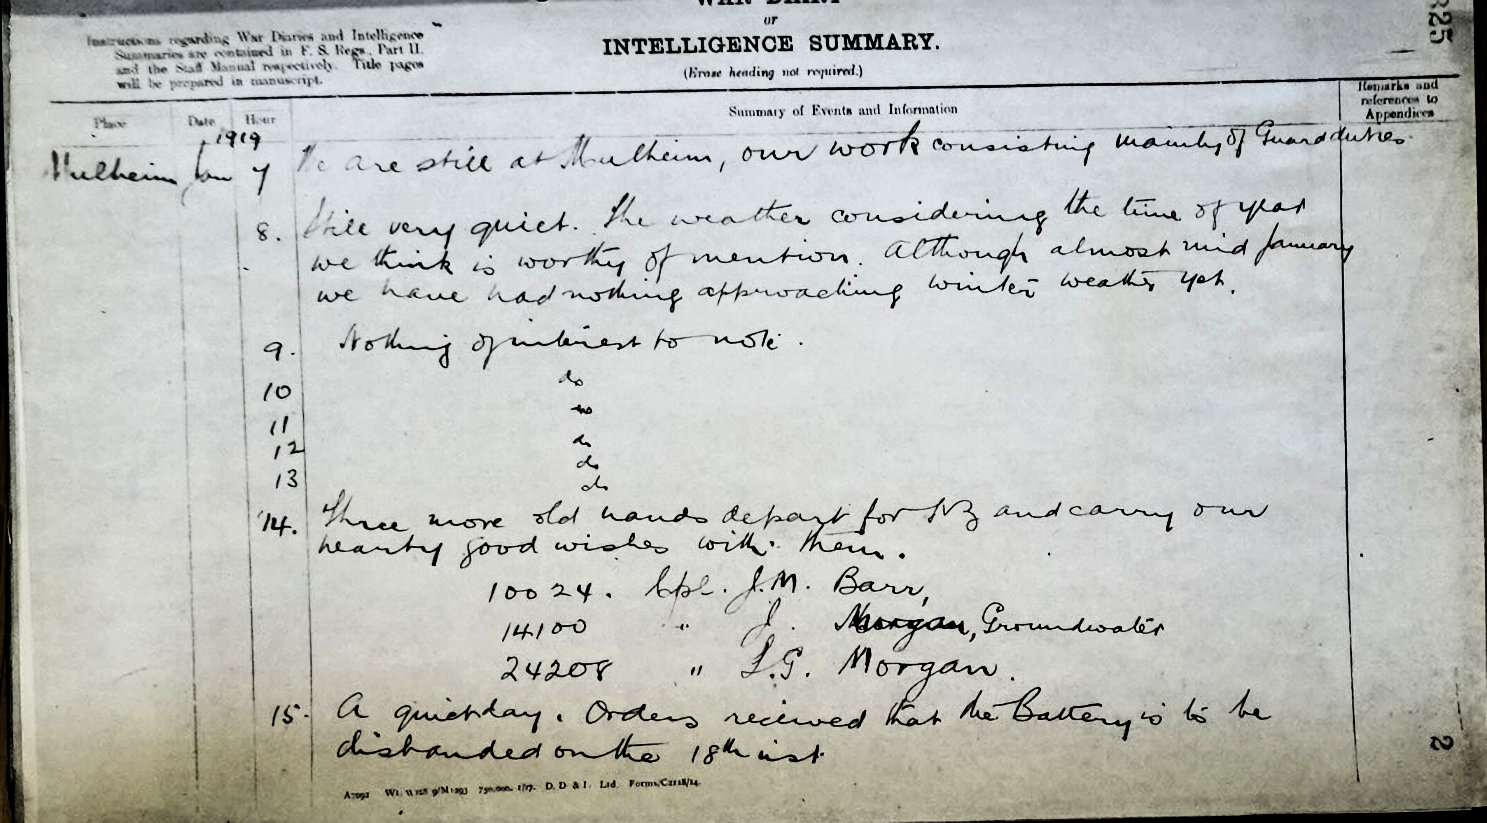 WAR DIARY
or
INTELLIGENCE SUMMARY.
(Erase heading not required.)
Instructions regarding War Diaries and Intelligence
Summaries are contained in F. S. Regs., Part II.
and the Staff Manual respectively. Title pages
will be prepared in manuscript.
325
Place Date Hour Summary of Events and Information Remarks and references to Appendices
1919
Mulheim Jan 7 We are still at Mulheim, our work consisting mainly of Guard duties.
8. Still very quiet. The weather considering the time of year
we think is worthy of mention. Although almost mid January
we have had nothing approaching winter weather yet.
9. Nothing of interest to note.
10 do
11 do
12 do
13 do
do
14. Three more old hands depart for NZ and carry our
hearty good wishes with them.
10024. Cpl. J.M. Barr,
14100 " J. Morgan, Groundwater
24208 " L.G. Morgan.
15. A quiet day. Orders received that the Battery is to be
disbanded on the 18th inst.
2
D. D & L. Ltd. Forms/C2118/14.